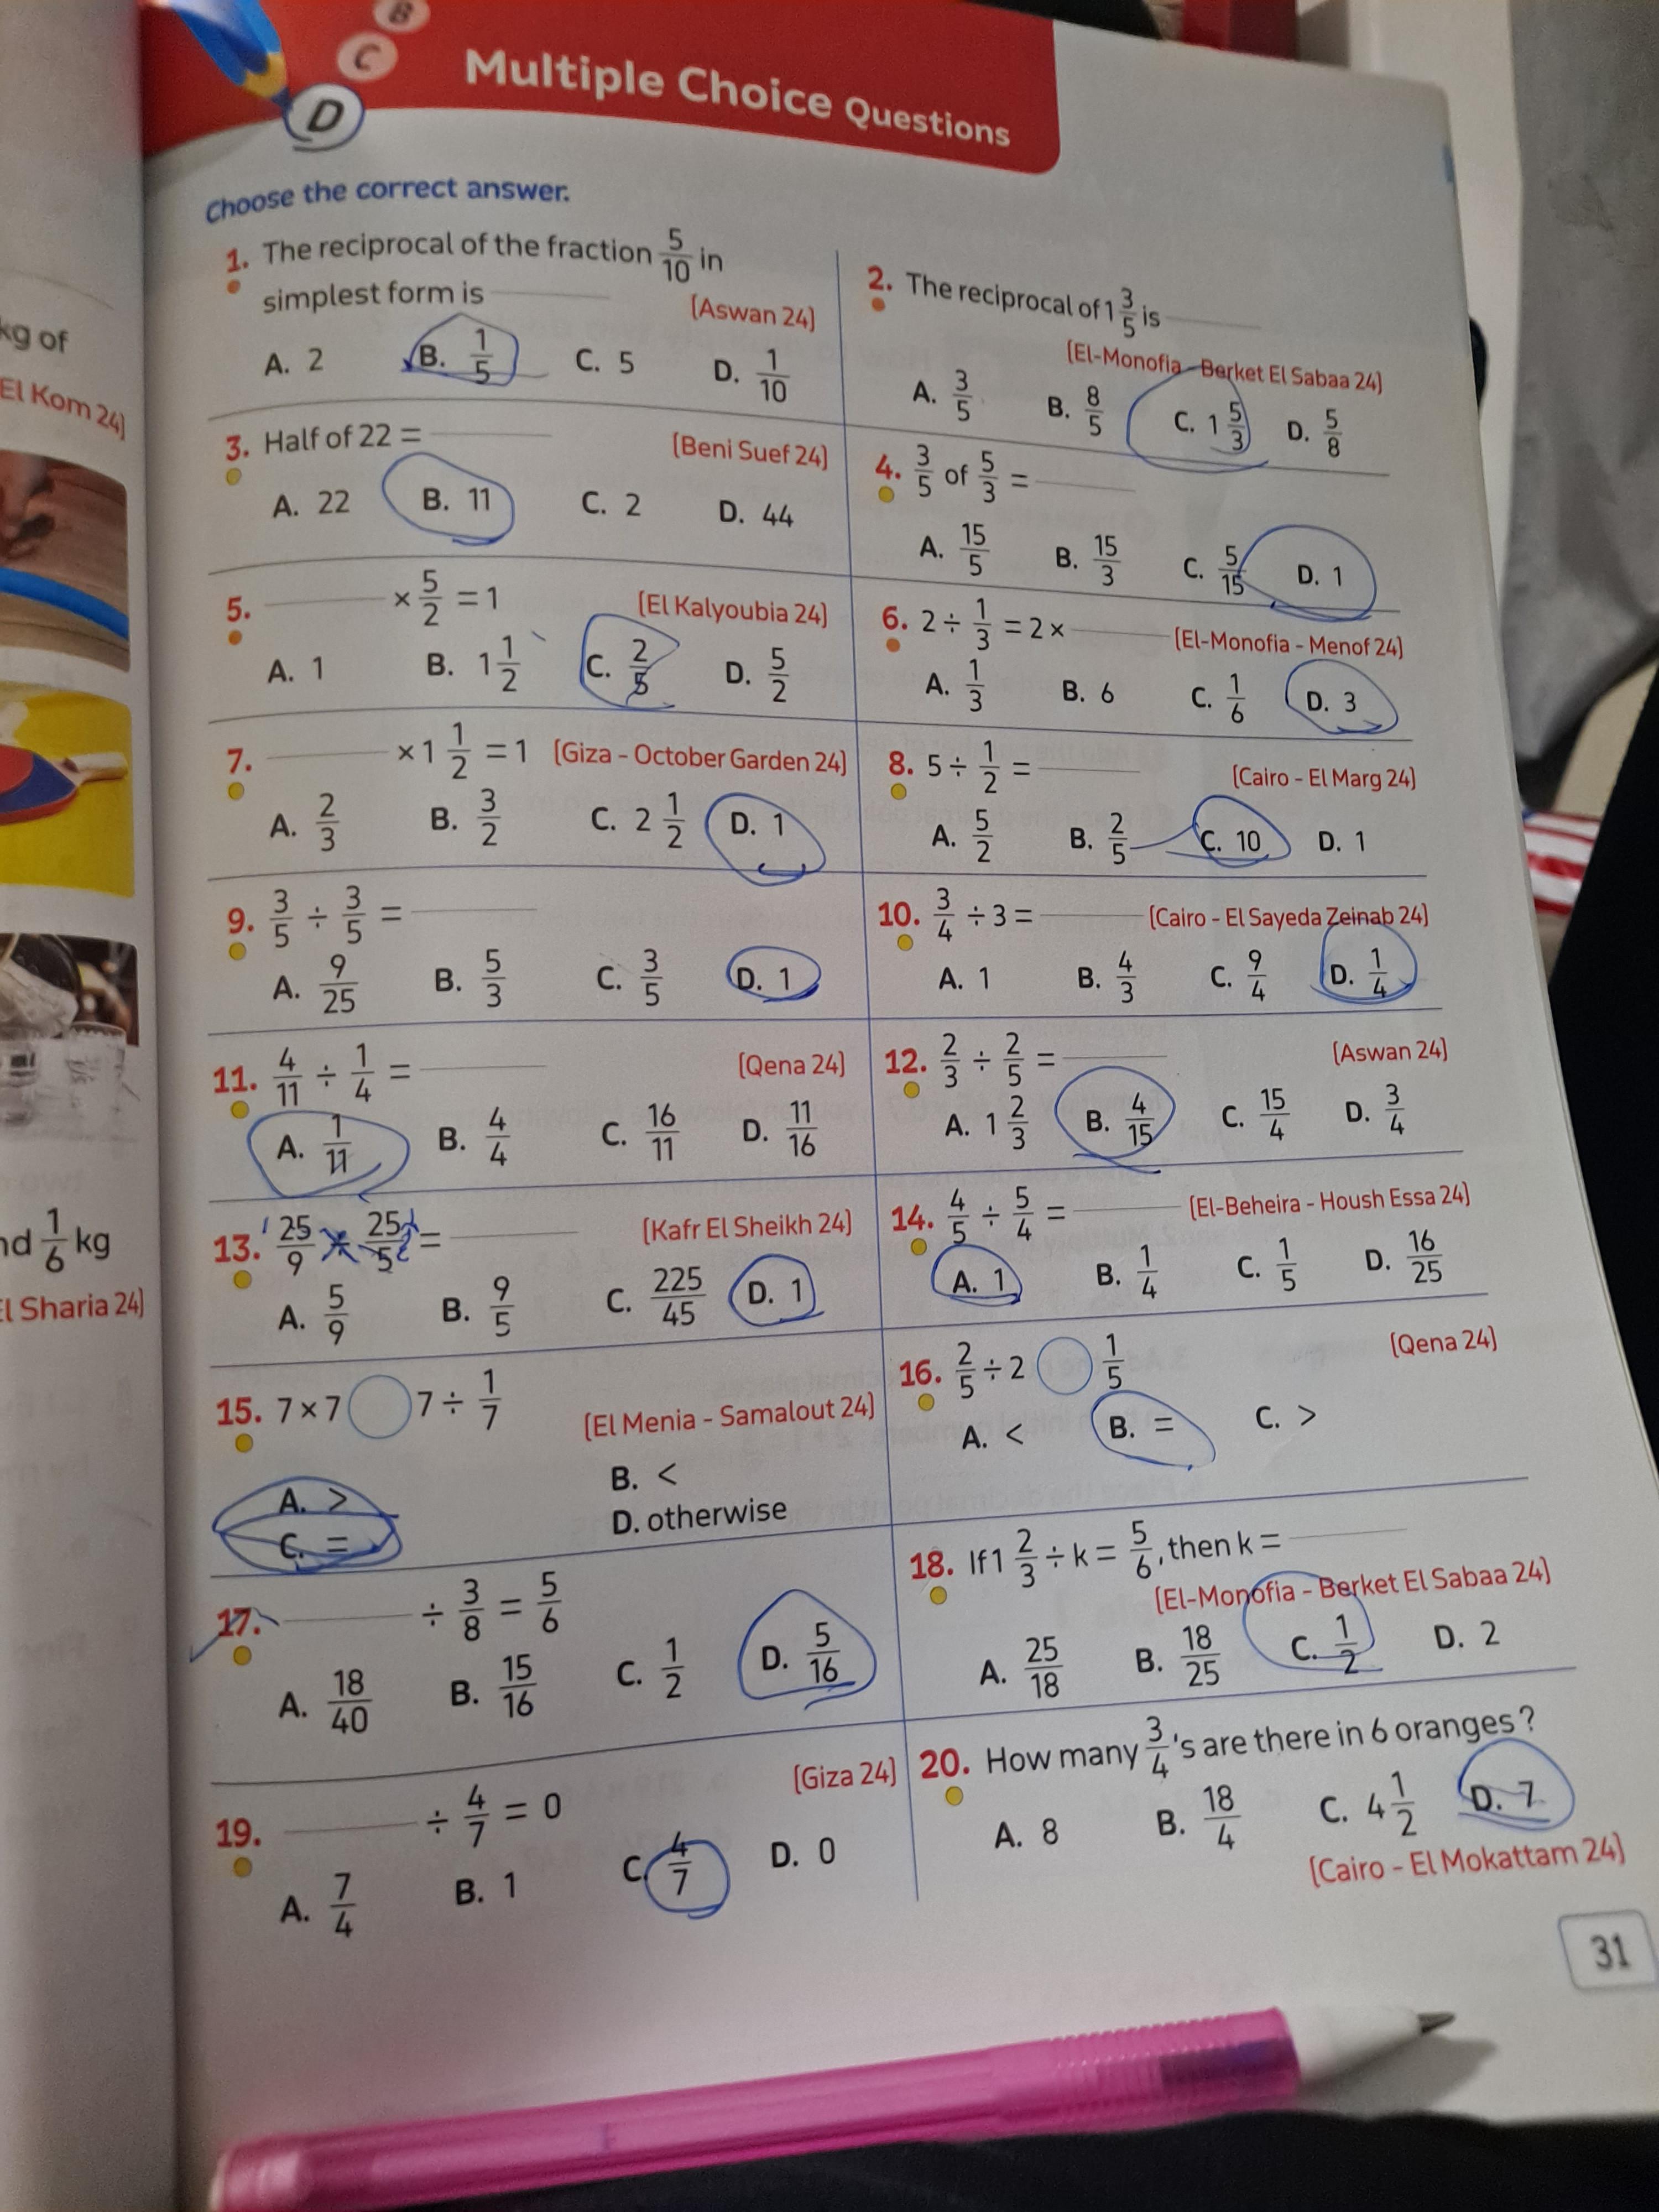 B
C
D
Multiple Choice Questions
Choose the correct answer.
1. The reciprocal of the fraction 5/10 in
simplest form is
[Aswan 24]
A. 2 B. 1/5 C. 5 D. 1/10
2. The reciprocal of 1 3/5 is
[El-Monofia - Berket El Sabaa 24]
A. 3/5 B. 8/5 C. 1 5/3 D. 5/8
3. Half of 22 =
[Beni Suef 24]
A. 22 B. 11 C. 2 D. 44
4. 3/5 of 5/3 =
A. 15/5 B. 15/3 C. 5/15 D. 1
5. × 5/2 = 1 [El Kalyoubia 24]
A. 1 B. 1 1/2 C. 2/5 D. 5/2
6. 2 ÷ 1/3 = 2 × [El-Monofia - Menof 24]
A. 1/3 B. 6 C. 1/6 D. 3
7. × 1 1/2 = 1 [Giza - October Garden 24]
A. 2/3 B. 3/2 C. 2 1/2 D. 1
8. 5 ÷ 1/2 = [Cairo - El Marg 24]
A. 5/2 B. 2/5 C. 10 D. 1
9. 3/5 ÷ 3/5 =
A. 9/25 B. 5/3 C. 3/5 D. 1
10. 3/4 ÷ 3 = [Cairo - El Sayeda Zeinab 24]
A. 1 B. 4/3 C. 9/4 D. 1/4
11. 4/11 ÷ 1/4 = [Qena 24]
A. 1/11 B. 4/4 C. 16/11 D. 11/16
12. 2/3 ÷ 2/5 = [Aswan 24]
A. 1 2/3 B. 4/15 C. 15/4 D. 3/4
13. 25/9 ÷ 25/5 = [Kafr El Sheikh 24]
A. 5/9 B. 9/5 C. 225/45 D. 1
14. 4/5 ÷ 5/4 = [El-Beheira - Housh Essa 24]
A. 1 B. 1/4 C. 1/5 D. 16/25
15. 7 × 7 7 ÷ 1/7
[El Menia - Samalout 24]
A. > B. <
C. = D. otherwise
16. 2/5 ÷ 2 1/5 [Qena 24]
A. < B. = C. >
17. ÷ 3/8 = 5/6
A. 18/40 B. 15/16 C. 1/2 D. 5/16
18. If 1 2/3 ÷ k = 5/6, then k =
[El-Monofia - Berket El Sabaa 24]
A. 25/18 B. 18/25 C. 1/2 D. 2
19. ÷ 4/7 = 0 [Giza 24]
A. 7/4 B. 1 C. 4/7 D. 0
20. How many 3/4's are there in 6 oranges?
A. 8 B. 18/4 C. 4 1/2 D. 7
[Cairo - El Mokattam 24]
31
kg of
El Kom 24]
1/6 kg
El Sharia 24]